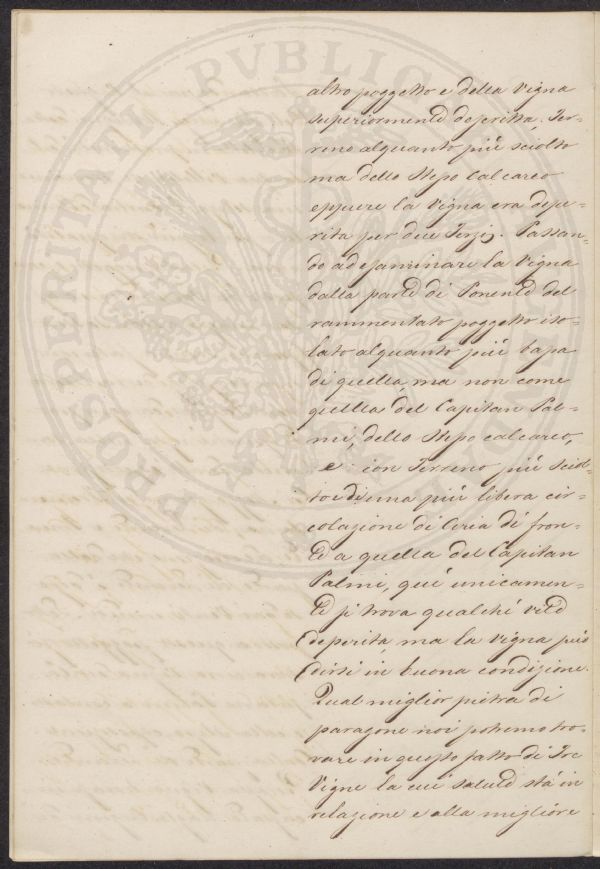 altro poggetto e della Vigna
superiormente descritta. Ter-
reno alquanto più sciolto
ma dello stesso calcareo
eppure la Vigna era depe-
rita per due Terzi. Passan-
do ad esaminare la Vigna
dalla parte di Ponente del
rammentato poggetto iso-
lato alquanto più bassa
di quella, ma non come
quella del Capitan Pal-
mi, dello stesso calcareo,
e con Terreno più sciol-
to e di una più libera cir-
colazione di Aria di fron-
te a quella del Capitan
Palmi, qui unicamen-
te si trova qualche vite
deperita, ma la vigna può
dirsi in buona condizione.
Qual miglior pietra di
paragone noi potremo tro-
vare in questo fatto di Tre
Vigne la cui salute stà in
relazione e alla migliore
PROSPERITATI PVBLIC